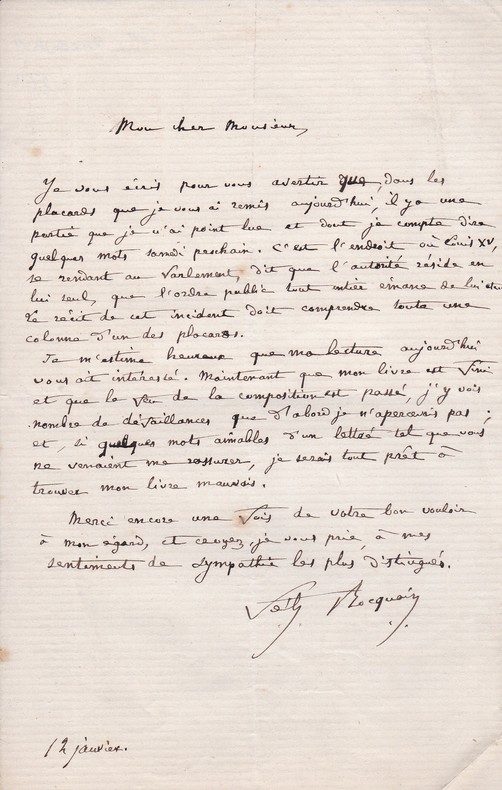 Mon cher Monsieur,
Je vous écris pour vous avertir que, dans les
placards que je vous ai remis aujourd'hui, il y a une
partie que je n'ai point lue et dont je compte dire
quelques mots samedi prochain. C'est l'endroit où Louis XV,
se rendant au Parlement, dit que l'autorité réside en
lui seul, que l'ordre public tout entier émane de lui etc.
Le récit de cet incident doit comprendre toute une
colonne d'un des placards.
Je m'estime heureux que ma lecture aujourd'hui
vous ait intéressé. Maintenant que mon livre est fini
et que le feu de la composition est passé, j'y vois
nombre de défaillances que d'abord je n'apercevais pas ;
et, si quelques mots aimables d'un lettré tel que vous
ne venaient me rassurer, je serais tout prêt à
trouver mon livre mauvais.
Merci encore une fois de votre bon vouloir
à mon égard, et croyez, je vous prie, à mes
sentiments de sympathie les plus distingués.
Félix Rocquain
12 janvier.